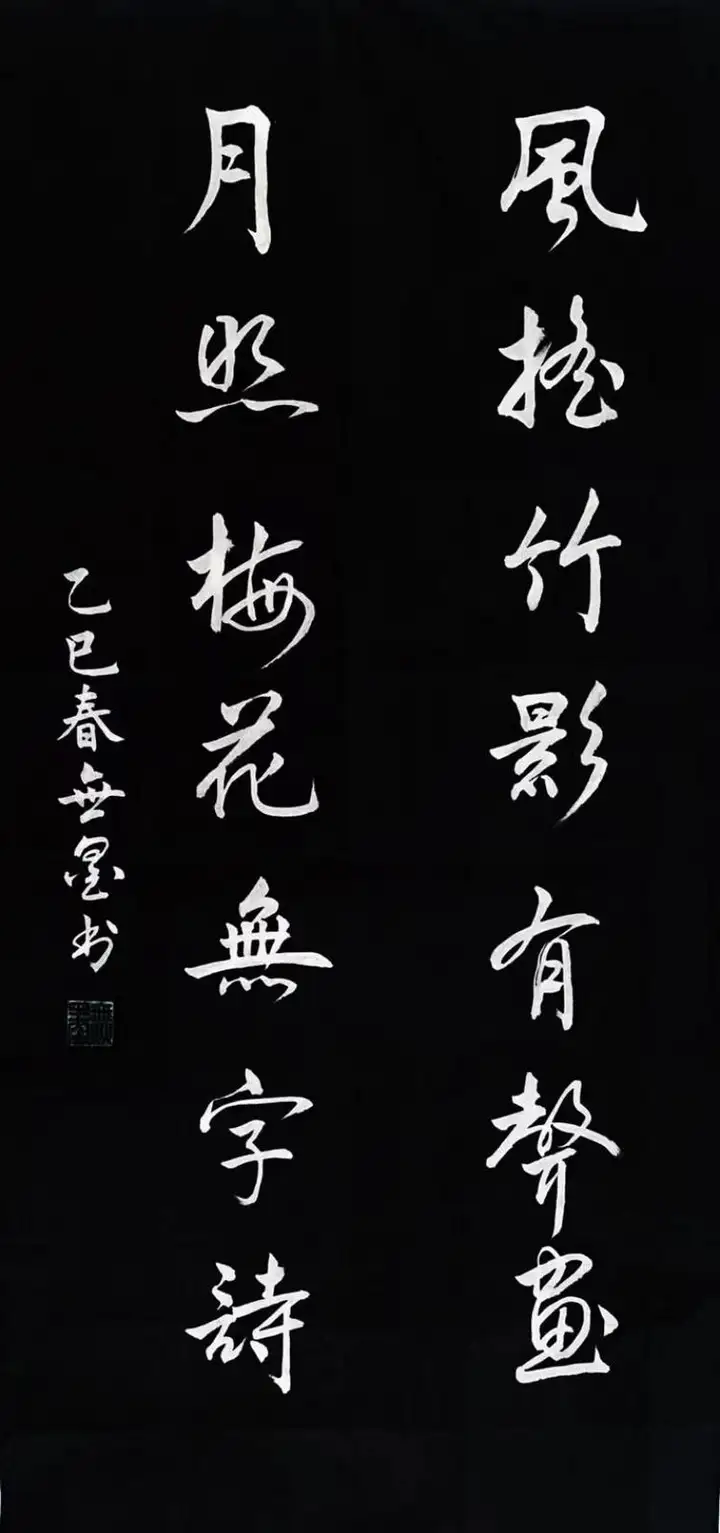 風搖竹影有聲畫
月照梅花無字詩
乙巳春無墨书